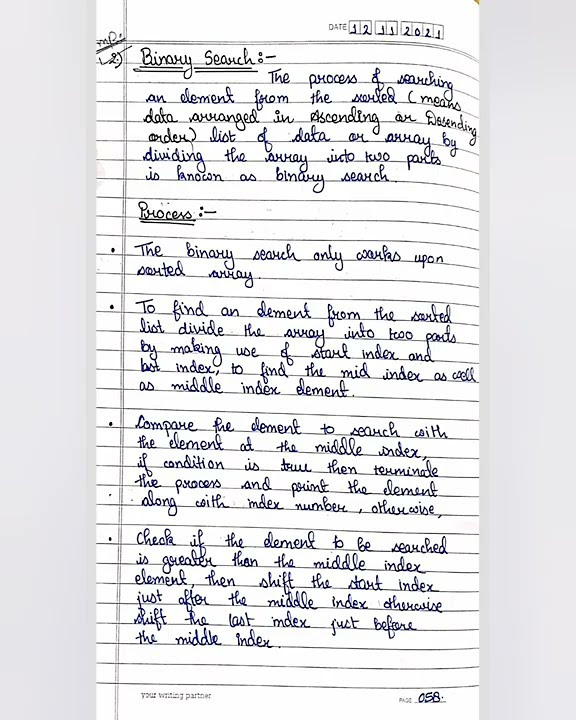 DATE 12 11 2021
mp.
2) Binary Search :-
The process of searching
an element from the sorted (means
data arranged in Ascending or Descending
order) list of data or array by
dividing the array into two parts
is known as binary search.
Process :-
• The binary search only works upon
sorted array.
• To find an element from the sorted
list divide the array into two parts
by making use of start index and
last index, to find the mid index as well
as middle index element.
• Compare the element to search with
the element at the middle index,
if condition is true then terminate
the process and print the element
along with index number, otherwise,
• Check if the element to be searched
is greater than the middle index
element, then shift the start index
just after the middle index otherwise
shift the last index just before
the middle index.
your writing partner
PAGE 058.